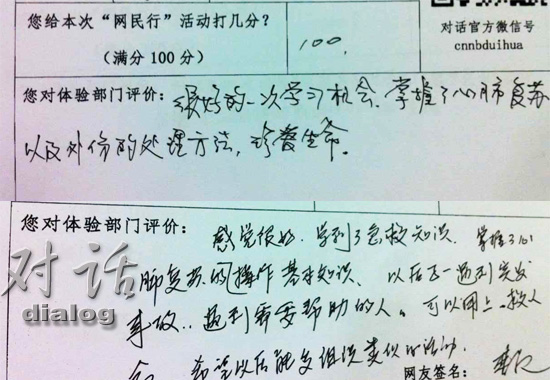 您给本次“网民行”活动打几分？
（满分 100 分）
100.
对话官方微信号
cnnbduihua
您对体验部门评价：很好的一次学习机会、掌握了心肺复苏
以及外伤的处理方法，珍爱生命。
您对体验部门评价：感觉很好，学到了急救知识、掌握了心
肺复苏的操作基本知识、以后去遇到突发
事故..遇到需要帮助的人。可以用上.救人
希望以后能多组织类似的活动.
网友签名：
对话
dialog